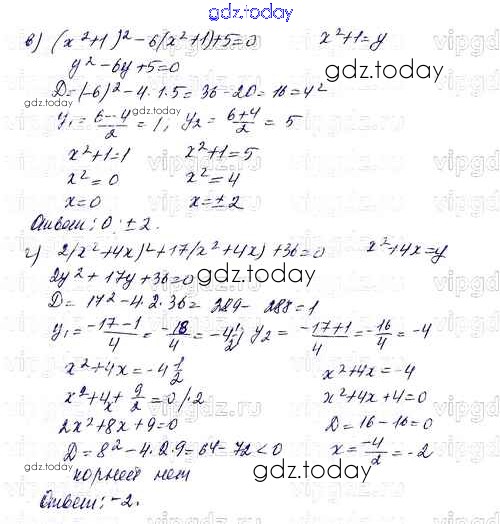 gdz.today
в) (x²+1)²-6(x²+1)+5=0 x²+1=y
y²-6y+5=0
gdz.today
D=(-6)²-4·1·5=36-20=16=4²
y₁=(6-4)/2=1; y₂=(6+4)/2=5
x²+1=1 x²+1=5
x²=0 x²=4
x=0 x=±2
Ответ: 0; ±2.
г) 2(x²+4x)²+17(x²+4x)+36=0 x²+4x=y
2y²+17y+36=0
gdz.today
D=17²-4·2·36=289-288=1
y₁=(-17-1)/4=-18/4=-4 1/2; y₂=(-17+1)/4=-16/4=-4
x²+4x=-4 1/2 x²+4x=-4
x²+4x+9/2=0 /·2 x²+4x+4=0
2x²+8x+9=0 D=16-16=0
D=8²-4·2·9=64-72<0 x=-4/2=-2
корней нет
gdz.today
Ответ: -2.